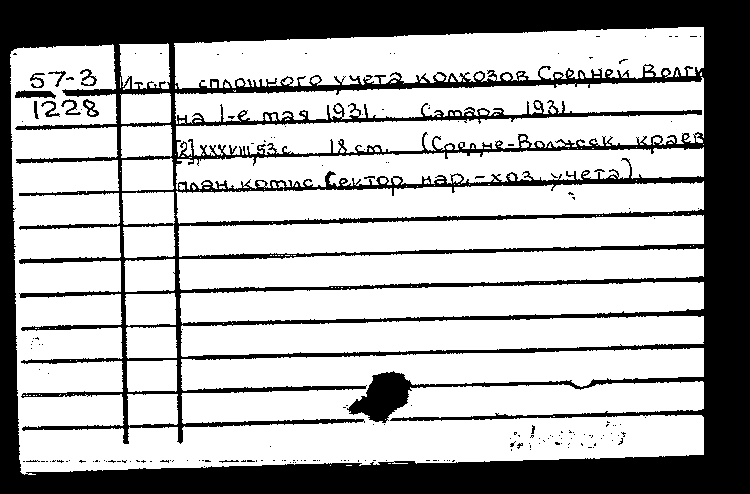 57-3 Итоги сплошного учета колхозов Средней Волги
1228 на 1-е мая 1931. Самара, 1931.
[2],XXXVIII,53 с. 18 см. (Средне-Волжск. краев
план. комис. Сектор нар.-хоз. учета).